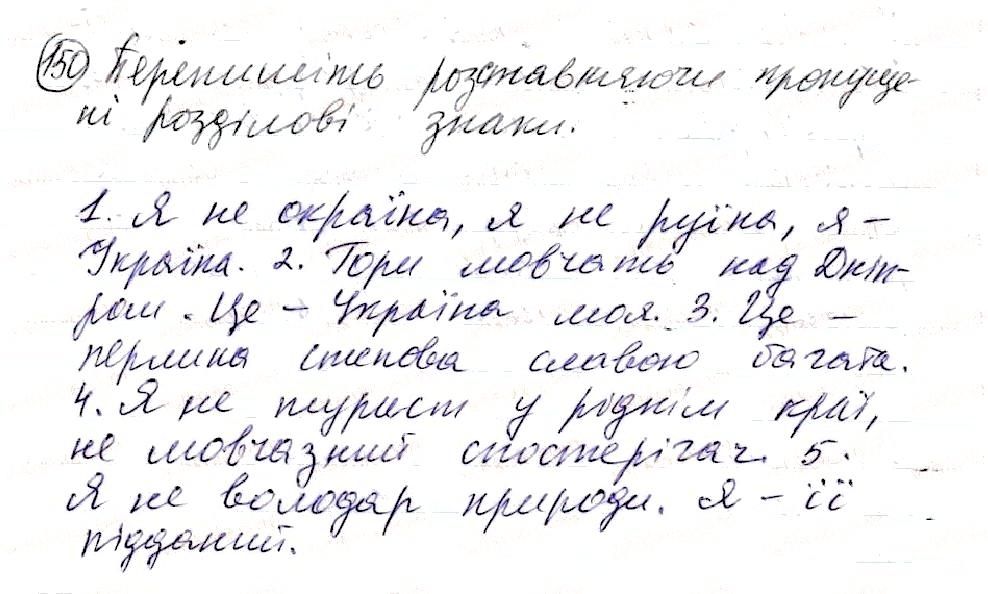 150 Перепишіть розставляючи пропуще-
ні розділові знаки.
1. Я не окраїна, я не руїна, я –
Україна. 2. Гори мовчать над Дніп-
ром. Це – Україна моя. 3. Це –
перлина степова славою багата.
4. Я не турист у ріднім краї,
не мовчазний спостерігач. 5.
Я не володар природи. Я – її
підданий.